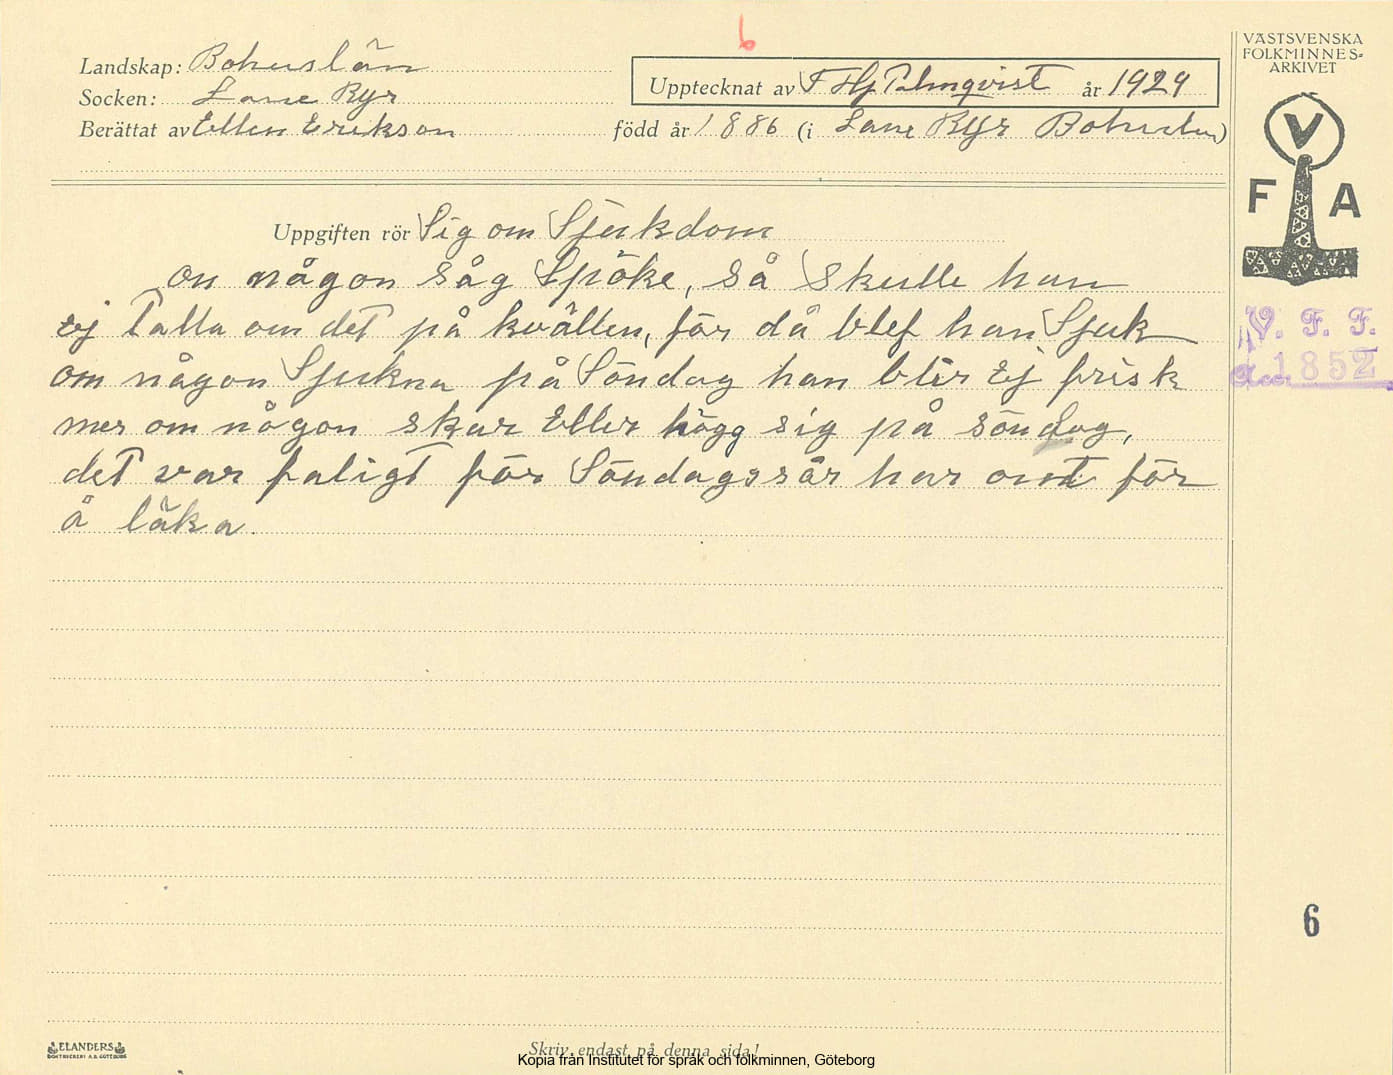 6
Landskap: Bohuslän
Socken: Lane Ryr
Berättat av Ellen Erikson
Upptecknat av F Hj Palmqvist år 1929
född år 1886 (i Lane Ryr Bohuslän)
VÄSTSVENSKA
FOLKMINNES=
ARKIVET
V
F A
V. F. F.
Acc. 1852
Uppgiften rör Sig om Sjukdom
om någon såg Spöke, så skulle han
ej Talla om det på kvällen, för då blef han Sjuk
om någon Sjukna på Söndag han blir Ej frisk
mer om någon skar Eller högg sig på söndag,
det var faligt för Söndagssår har ont för
å läka.
6
ELANDERS
BOKTRYCKERI A.B. GÖTEBORG
Skriv endast på denna sida!
Kopia från Institutet för språk och folkminnen, Göteborg